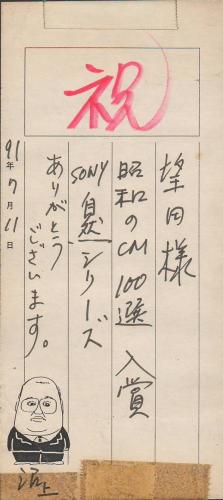 祝
埜田様
昭和のCM100選 入賞
SONY自然シリーズ
ありがとう
ございます。
91年7月11日